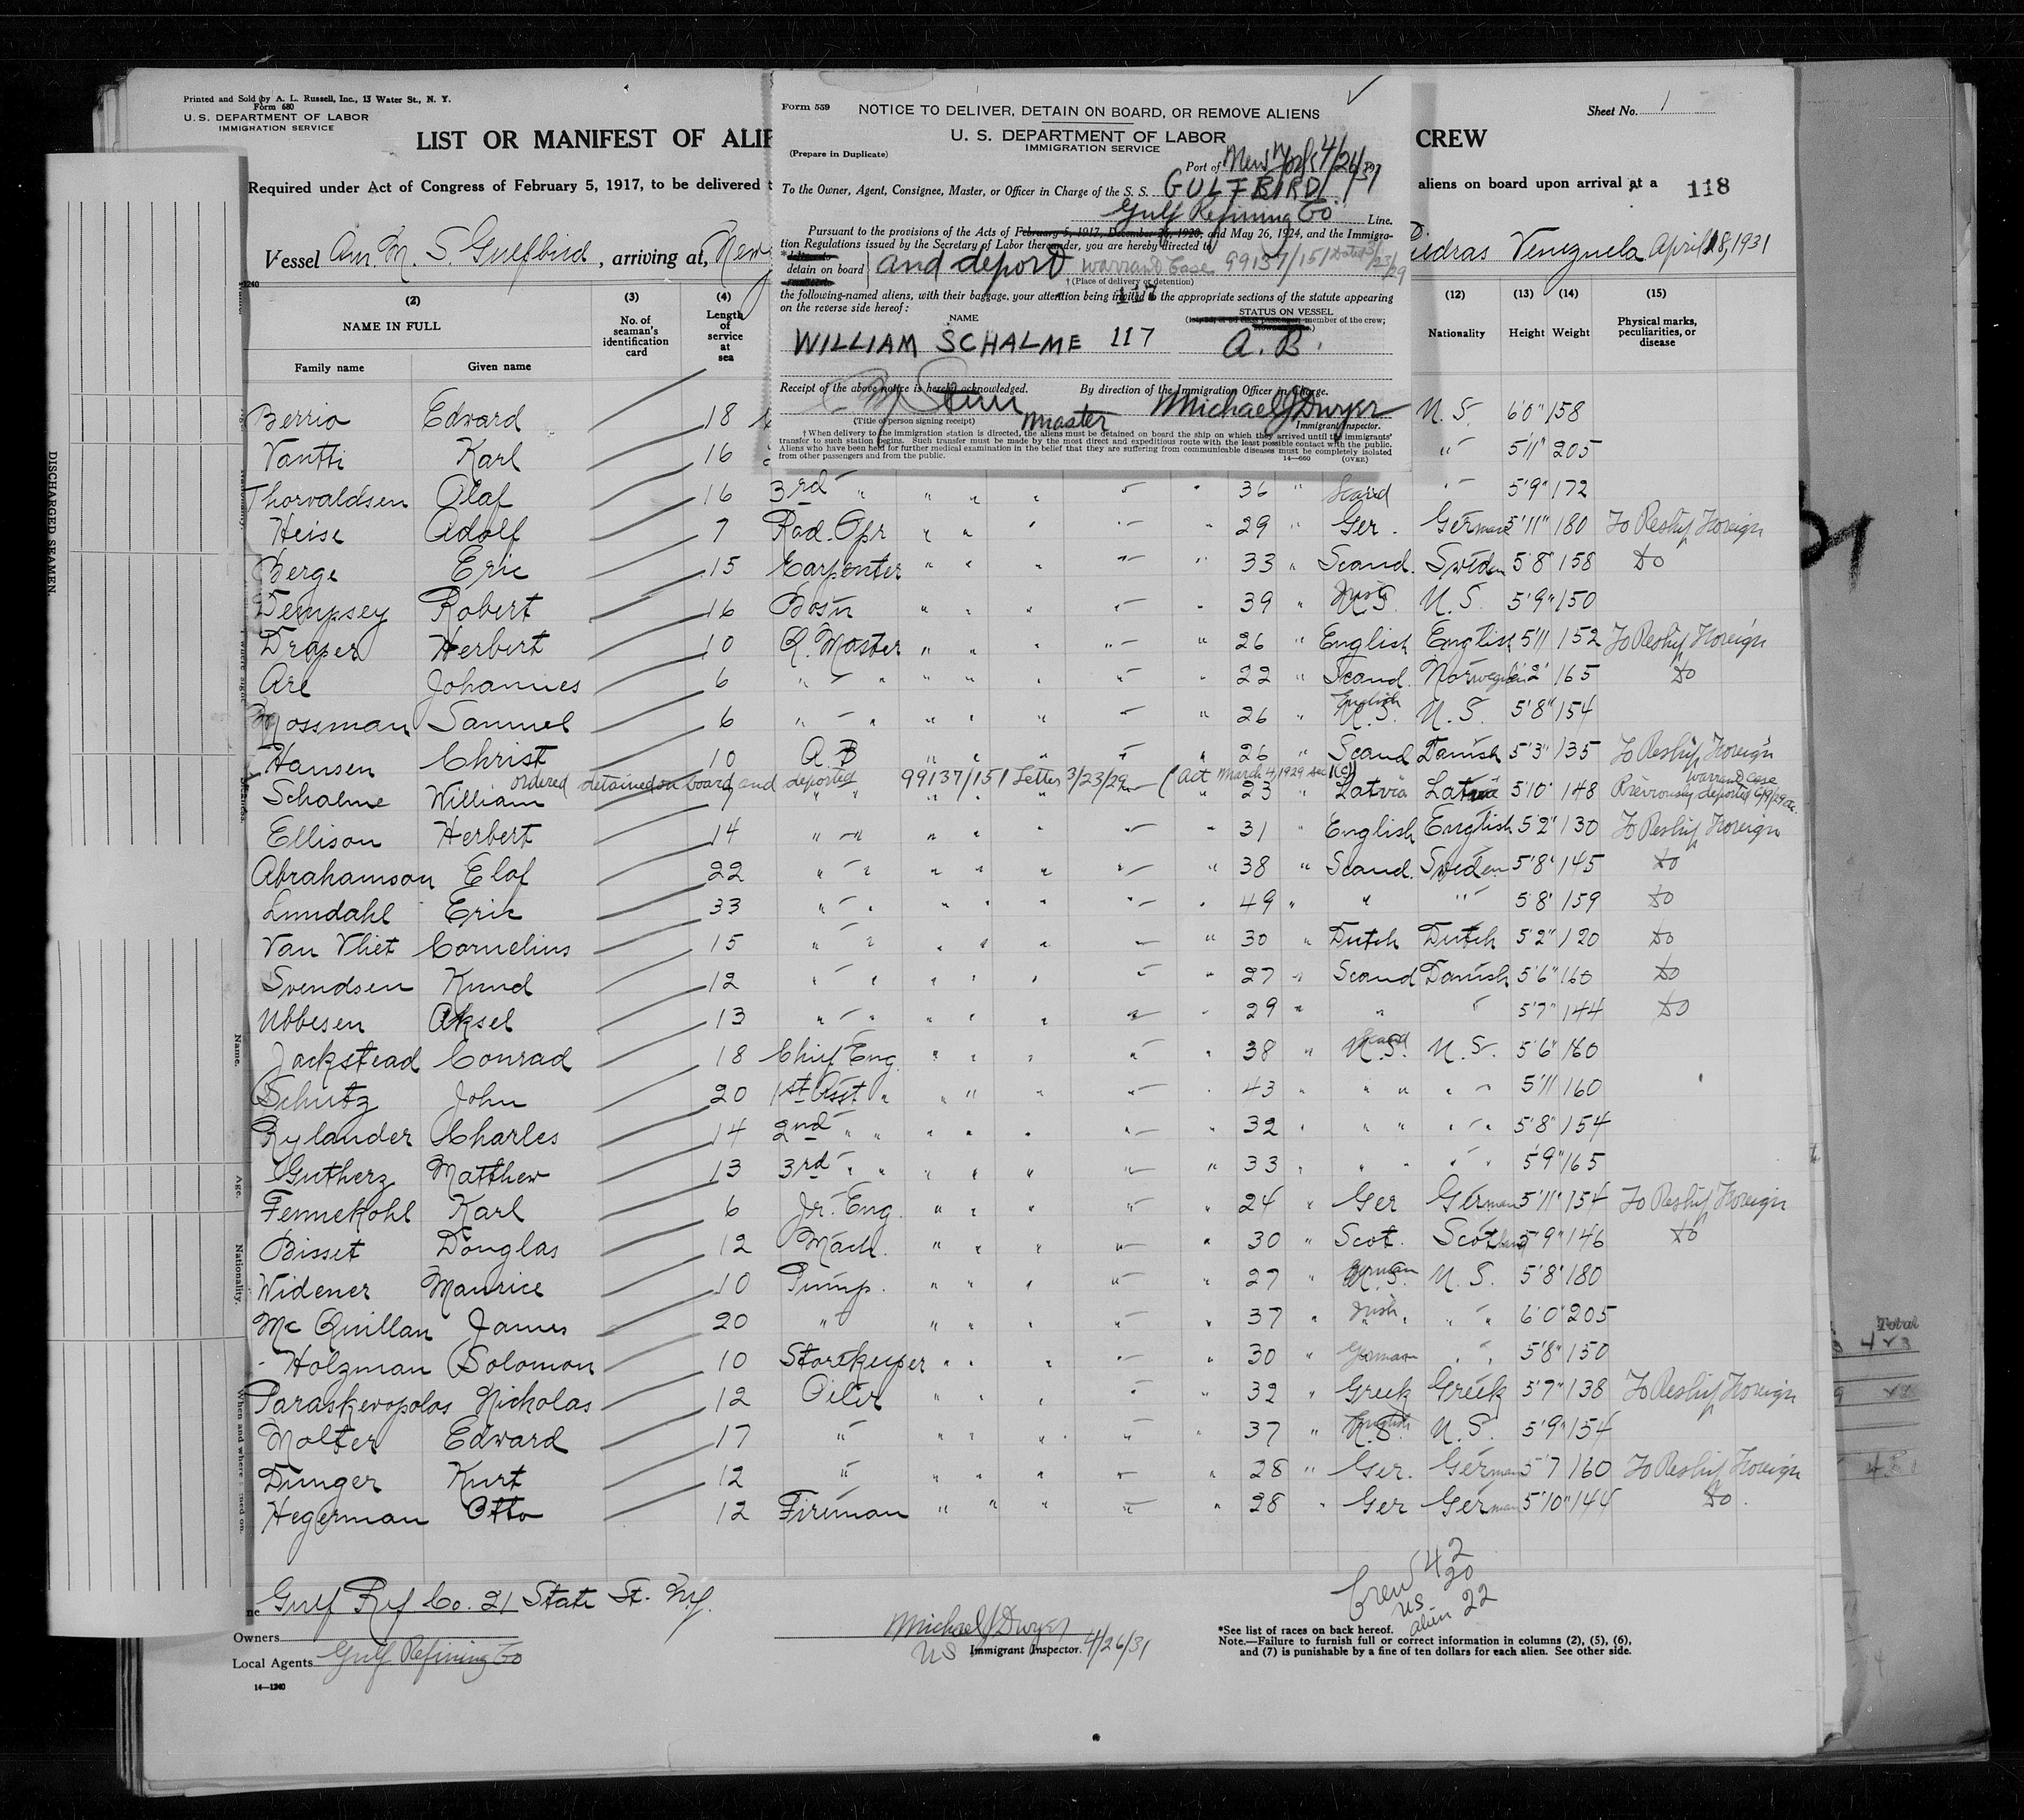 Printed and Sold by A. L. Russell, Inc., 13 Water St., N. Y.
Form 680
U. S. DEPARTMENT OF LABOR
IMMIGRATION SERVICE
LIST OR MANIFEST OF ALIE
CREW
Sheet No. 1
Required under Act of Congress of February 5, 1917, to be delivered t
aliens on board upon arrival at a
118
Vessel Am. M. S. Gulfbird, arriving at, New
Piedras Venezuela April 18, 1931
Form 559
NOTICE TO DELIVER, DETAIN ON BOARD, OR REMOVE ALIENS
U. S. DEPARTMENT OF LABOR
IMMIGRATION SERVICE
(Prepare in Duplicate)
Port of New York 4/26/31
To the Owner, Agent, Consignee, Master, or Officer in Charge of the S. S. GULFBIRD
Gulf Refining Co Line.
Pursuant to the provisions of the Acts of February 5, 1917, December 26, 1920, and May 26, 1924, and the Immigra-
tion Regulations issued by the Secretary of Labor thereunder, you are hereby directed to
detain on board } and deport warrant Case 99137/151 Dated 3/23/29
† (Place of delivery or detention)
the following-named aliens, with their baggage, your attention being invited to the appropriate sections of the statute appearing
on the reverse side hereof:
117
NAME
STATUS ON VESSEL
member of the crew;
WILLIAM SCHALME 117 A. B.
Receipt of the above notice is hereby acknowledged.
By direction of the Immigration Officer in Charge.
Master
Michael J Dwyer
(Title of person signing receipt)
Immigrant Inspector.
† When delivery to the immigration station is directed, the aliens must be detained on board the ship on which they arrived until the immigrants'
transfer to such station begins. Such transfer must be made by the most direct and expeditious route with the least possible contact with the public.
Aliens who have been held for further medical examination in the belief that they are suffering from communicable diseases must be completely isolated
from other passengers and from the public.
14—660
(OVER)
(2) (3) (4) (12) (13) (14) (15)
NAME IN FULL
No. of seaman's identification card
Length of service at sea
Nationality Height Weight
Physical marks, peculiarities, or disease
Family name Given name
Berrio Edward 18 U. S. 6'0" 158
Vantti Karl 16 " 5'11" 205
Thorvaldsen Olaf 16 3rd " " " " " " 36 " Scand " 5'9" 172
Heise Adolf 7 Rad. Opr " " " " " 29 " Ger. German 5'11" 180 To Reship Foreign
Berge Eric 15 Carpenter " " " " " 33 " Scand. Sweden 5'8" 158 Do
Dempsey Robert 16 Bos'n " " " " " 39 " Irish U. S. U. S. 5'9" 150
Draper Herbert 10 Q. Master " " " " " 26 " English English 5'11 152 To Reship Foreign
Are Johannes 6 " " " " " " " 22 " Scand. Norwegian 6'2" 165 Do
Mossman Samuel 6 " " " " " " " 26 " English U. S. U. S. 5'8" 154
Hansen Christ 10 A. B " " " " " 26 " Scand Danish 5'3" 135 To Reship Foreign
ordered detained on board and deported 99137/151 Letter 3/23/29 (Act March 4, 1929 Sec 1(c)) warrant case
Schalme William 7 " " " " " " " 23 " Latvia Latvia 5'10" 148 Previously deported 6/9/29
Ellison Herbert 14 " " " " " " " 31 " English English 5'2" 130 To Reship Foreign
Abrahamson Elof 22 " " " " " " " 38 " Scand. Sweden 5'8" 145 Do
Lundahl Eric 33 " " " " " " " 49 " " " 5'8" 159 Do
Van Vliet Cornelius 15 " " " " " " " 30 " Dutch Dutch 5'2" 120 Do
Svendsen Knud 12 " " " " " " " 27 " Scand Danish 5'6" 160 Do
Ubbesen Aksel 13 " " " " " " " 29 " " " 5'7" 144 Do
Jackstead Conrad 18 Chief Eng. " " " " " 38 " Scand U. S. U. S. 5'6" 160
Schutz John 20 1st Asst " " " " " " 43 " " " " " 5'11 160
Rylander Charles 14 2nd " " " " " " " 32 " " " " " 5'8" 154
Gutherz Matthew 13 3rd " " " " " " " 33 " " " " " 5'9" 165
Fennekohl Karl 6 Jr. Eng. " " " " " 24 " Ger German 5'11" 154 To Reship Foreign
Bisset Douglas 12 Mach. " " " " " 30 " Scot. Scotland 5'9" 146 Do
Widener Maurice 10 Pump. " " " " " 27 " German U. S. U. S. 5'8" 180
Mc Quillan James 20 " " " " " " 37 " Irish " " 6'0" 205
Holzman Solomon 10 Storekeeper " " " " " 30 " German " " 5'8" 150
Paraskevopolos Nicholas 12 Oiler " " " " " 32 " Greek Greek 5'7" 138 To Reship Foreign
Molter Edward 17 " " " " " " 37 " English U. S. U. S. 5'9" 154
Dunger Kurt 12 " " " " " " 28 " Ger. German 5'7 160 To Reship Foreign
Hegerman Otto 12 Fireman " " " " " 28 " Ger German 5'10" 144 Do.
Crew 42
US 20
alien 22
Gulf Ref Co. 21 State St. N.Y.
Owners
Local Agents Gulf Refining Co
14—1240
Michael J Dwyer
US Immigrant Inspector. 4/26/31
*See list of races on back hereof.
Note.—Failure to furnish full or correct information in columns (2), (5), (6),
and (7) is punishable by a fine of ten dollars for each alien. See other side.
DISCHARGED SEAMEN.
Name.
Age.
Nationality.
When and where signed on.
Total